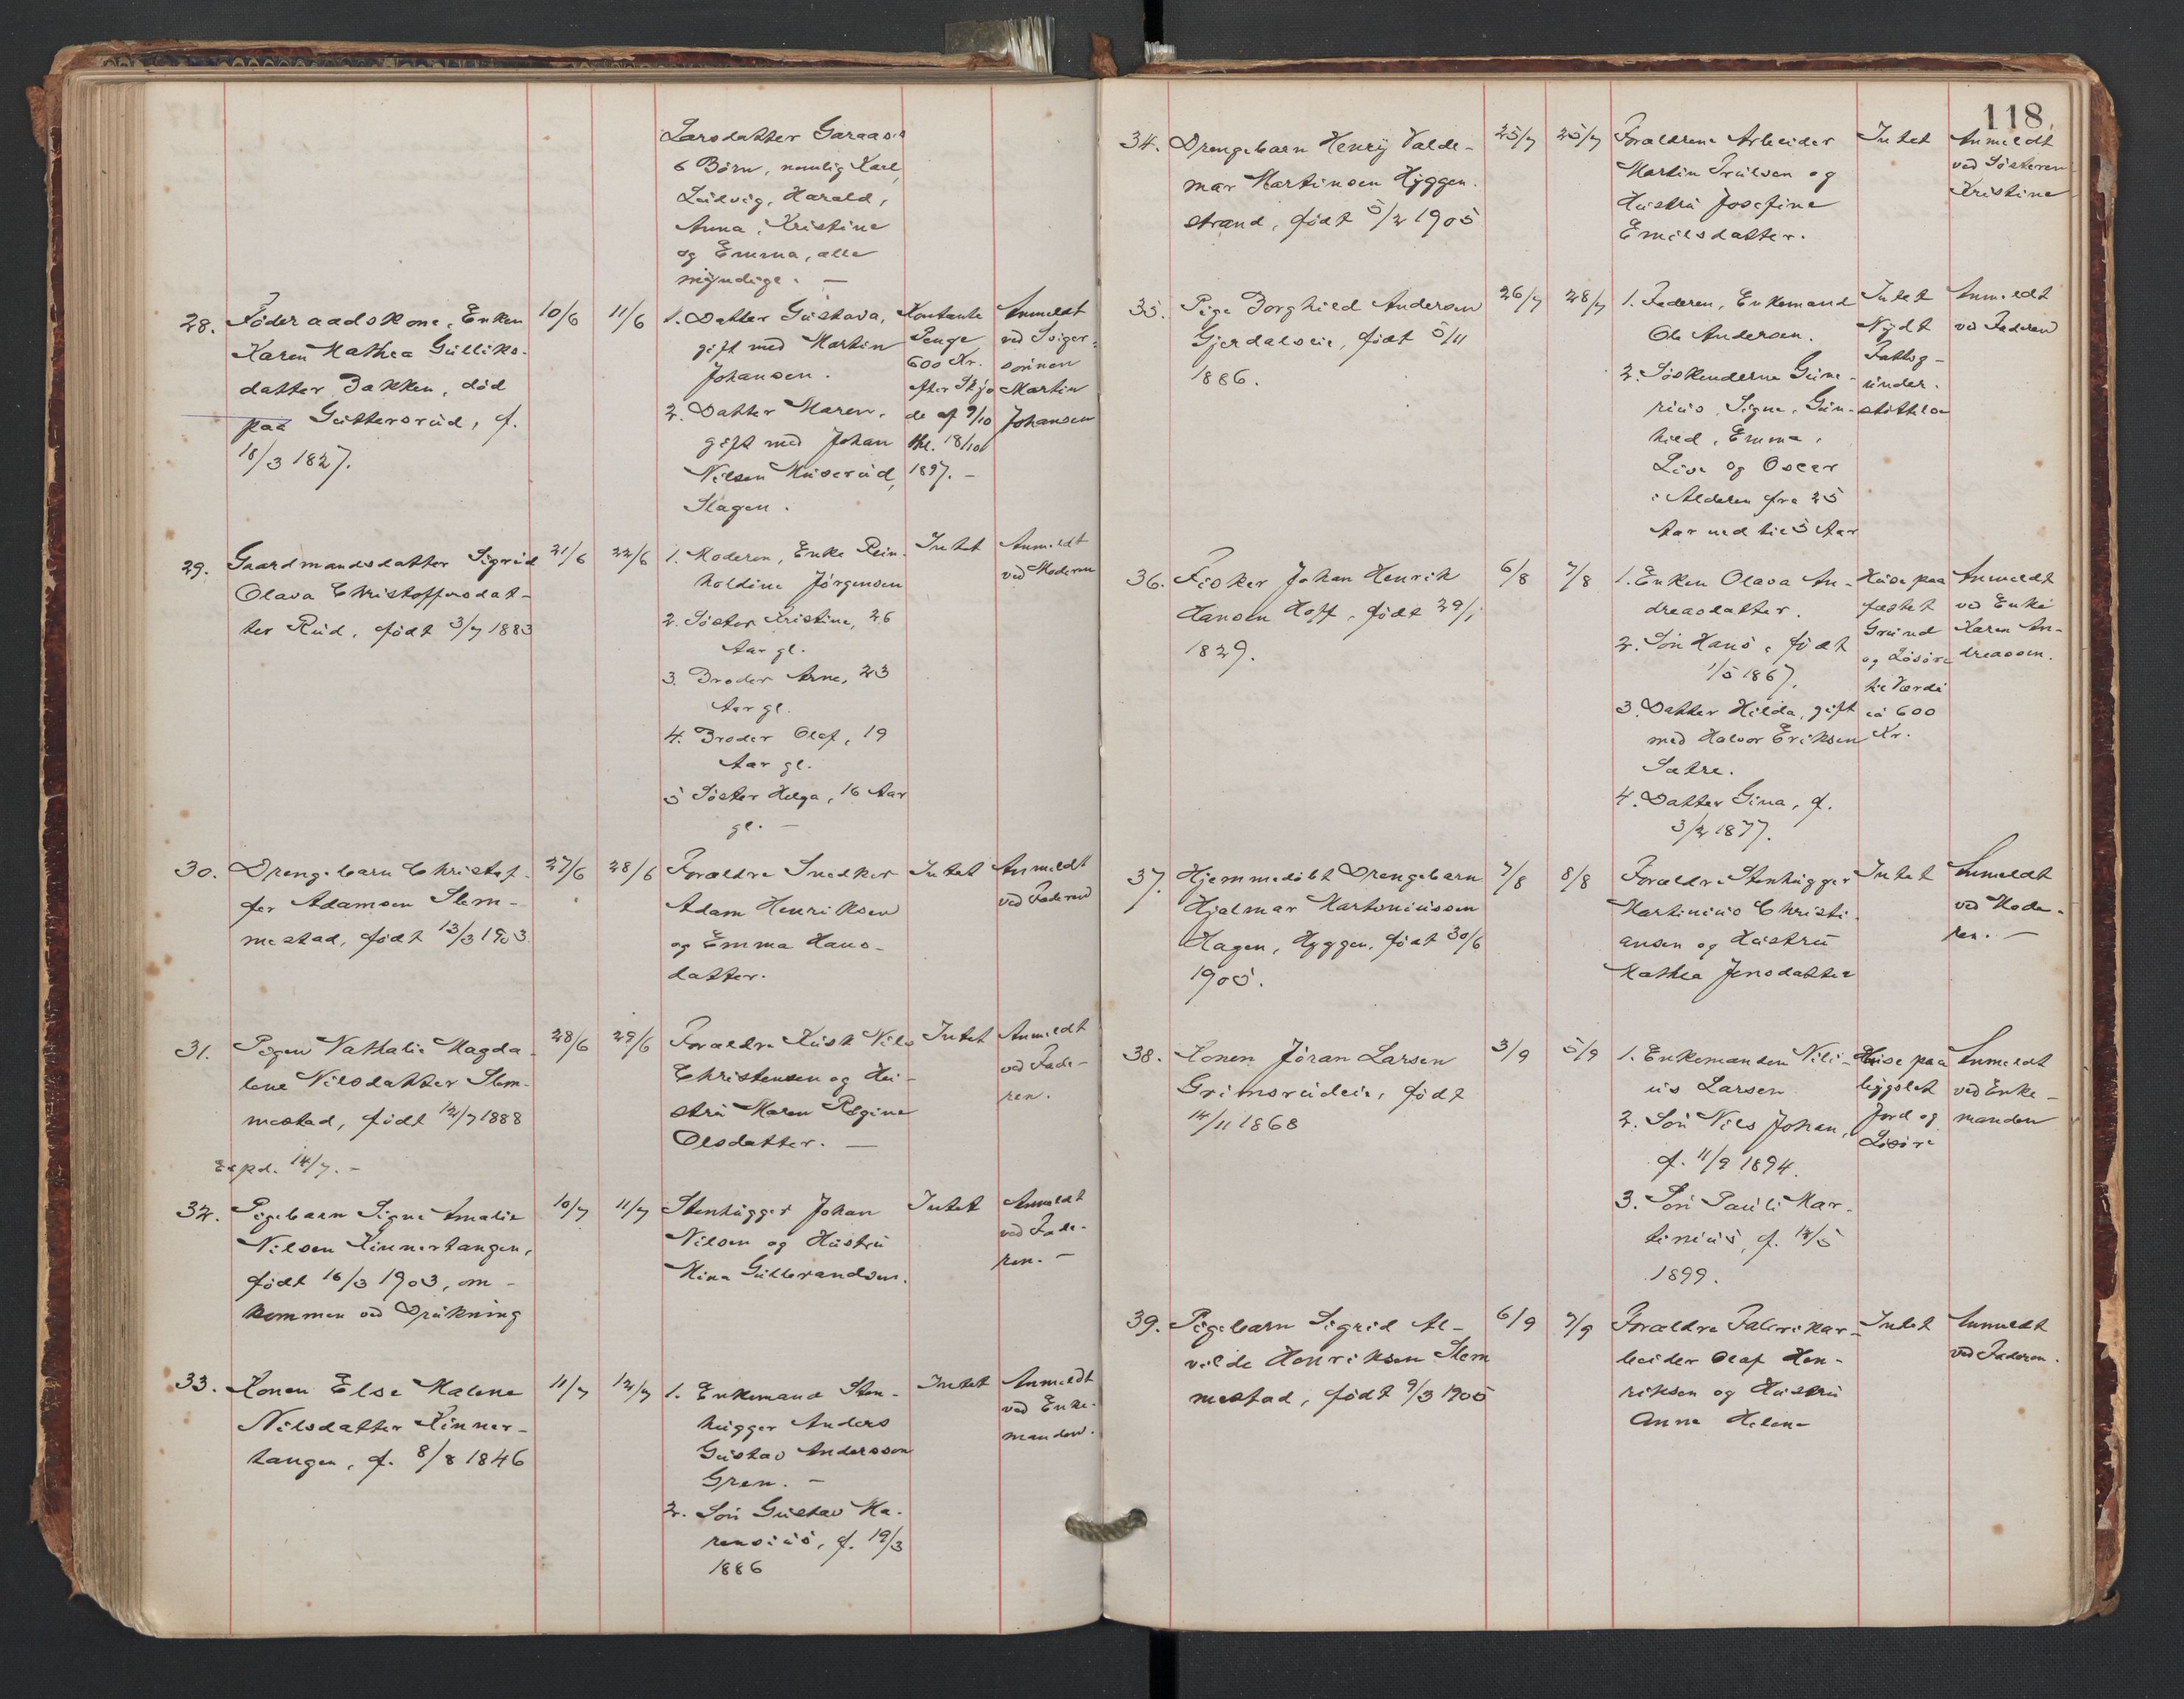 Larsdatter Garaas.
6 Børn, nemlig Karl,
Ludvig, Harald,
Anna, Kristine
og Emma, alle
myndige. —
28. Føderaadskone, Enken
Karen Mathea Gulliks-
datter Bakken, død
paa Guttersrud, f.
18/3 1827.
10/6
11/6
1. Datter Gustava,
gift med Martin
Johansen.
2. Datter Maren,
gift med Johan
Nilsen Huserud,
Slagen.
Kontante
Penge
600 Kr.
efter Skjø
de af 9/10
thl. 18/10
1897. —
Anmeldt
ved Sviger-
sønnen
Martin
Johansen
29. Gaardmandsdatter Sigrid
Olava Christoffersdat-
ter Rud, født 3/7 1883
21/6
22/6
1. Moderen, Enke Rein-
holdine Jørgensen
2. Søster Kristine, 26
Aar gl.
3. Broder Arne, 23
Aar gl.
4. Broder Olaf, 19
Aar gl.
5 Søster Helga, 16 Aar
gl. —
Intet
Anmeldt
ved Moderen
30. Drengebarn Christof-
fer Adamsen Slem-
mestad, født 13/3 1903.
27/6
28/6
Forældre Snedker
Adam Henriksen
og Emma Hans-
datter.
Intet
Anmeldt
ved Faderen
31. Pigen Nathalie Magda-
lene Nilsdatter Slem-
mestad, født 12/7 1888
Expd. 14/7. —
28/6
29/6
Forældre Kusk Nils
Christensen og Hu-
stru Maren Regine
Olsdatter. —
Intet
Anmeldt
ved Fade-
ren.
32. Pigebarn Signe Amalie
Nilsen Kinnertangen,
født 16/3 1903, om-
kommen ved Drukning
10/7
11/7
Stenhugger Johan
Nilsen og Hustru
Mina Gulbrandsen.
Intet
Anmeldt
ved Fade-
ren. —
33. Konen Else Malene
Nilsdatter Kinner-
tangen, f. 8/8 1846
11/7
12/7
1. Enkemand Sten-
hugger Anders
Gustav Andersson
Gren. —
2. Søn Gustav Ma-
rensius, f. 19/3
1886
Intet
Anmeldt
ved Enke-
manden.
118.
34. Drengebarn Henry Valde-
mar Martinsen Hyggen-
strand, født 5/2 1905
25/7
25/7
Forældrene Arbeider
Martin Trulsen og
Hustru Josefine
Emilsdatter.
Intet
Anmeldt
ved Søsteren
Kristine
35. Pige Borghild Andersen
Gjerdalseie, født 5/11
1886.
26/7
28/7
1. Faderen, Enkemand
Ole Andersen.
2. Søskenderne Gune-
rius, Signe, Gun-
hild, Emma,
Live og Oscar
i Alderen fra 25
Aar ned til 5 Aar
Intet
Nydt
Fattig-
under-
støttelse
Anmeldt
ved Faderen
36. Fisker Johan Henrik
Hansen Hoff, født 29/1
1829.
6/8
7/8
1. Enken Olava An-
dreasdatter.
2. Søn Hans, født
1/5 1867.
3. Datter Hilda, gift
med Halvor Eriksen
Sætre.
4. Datter Gina, f.
3/2 1877.
Huse paa
fæstet
Grund
og Løsøre
til Værdi
ca 600
Kr.
Anmeldt
ved Enke
Karen An-
dreassen.
37. Hjemmedøbt Drengebarn
Hjalmar Martiniussen
Hagen, Hyggen, født 30/6
1905.
7/8
8/8
Forældre Stenhugger
Martinius Christi-
ansen og Hustru
Mathea Jensdatter
Intet
Anmeldt
ved Mode-
ren. —
38. Konen Jøran Larsen
Grimsrudeie, født
14/11 1868
3/9
5/9
1. Enkemanden Nili-
us Larsen
2. Søn Nils Johan,
f. 11/9 1894.
3. Søn Pauli Mar-
tinius, f. 14/5
1899.
Huse paa
bygslet
Jord og
Løsøre
Anmeldt
ved Enke-
manden
39. Pigebarn Sigrid Al-
vilde Henriksen Slem
mestad, født 9/3 1905
6/9
7/9
Forældre Fabrikar-
beider Olaf Hen-
riksen og Hustru
Anna Helene
Intet
Anmeldt
ved Faderen.